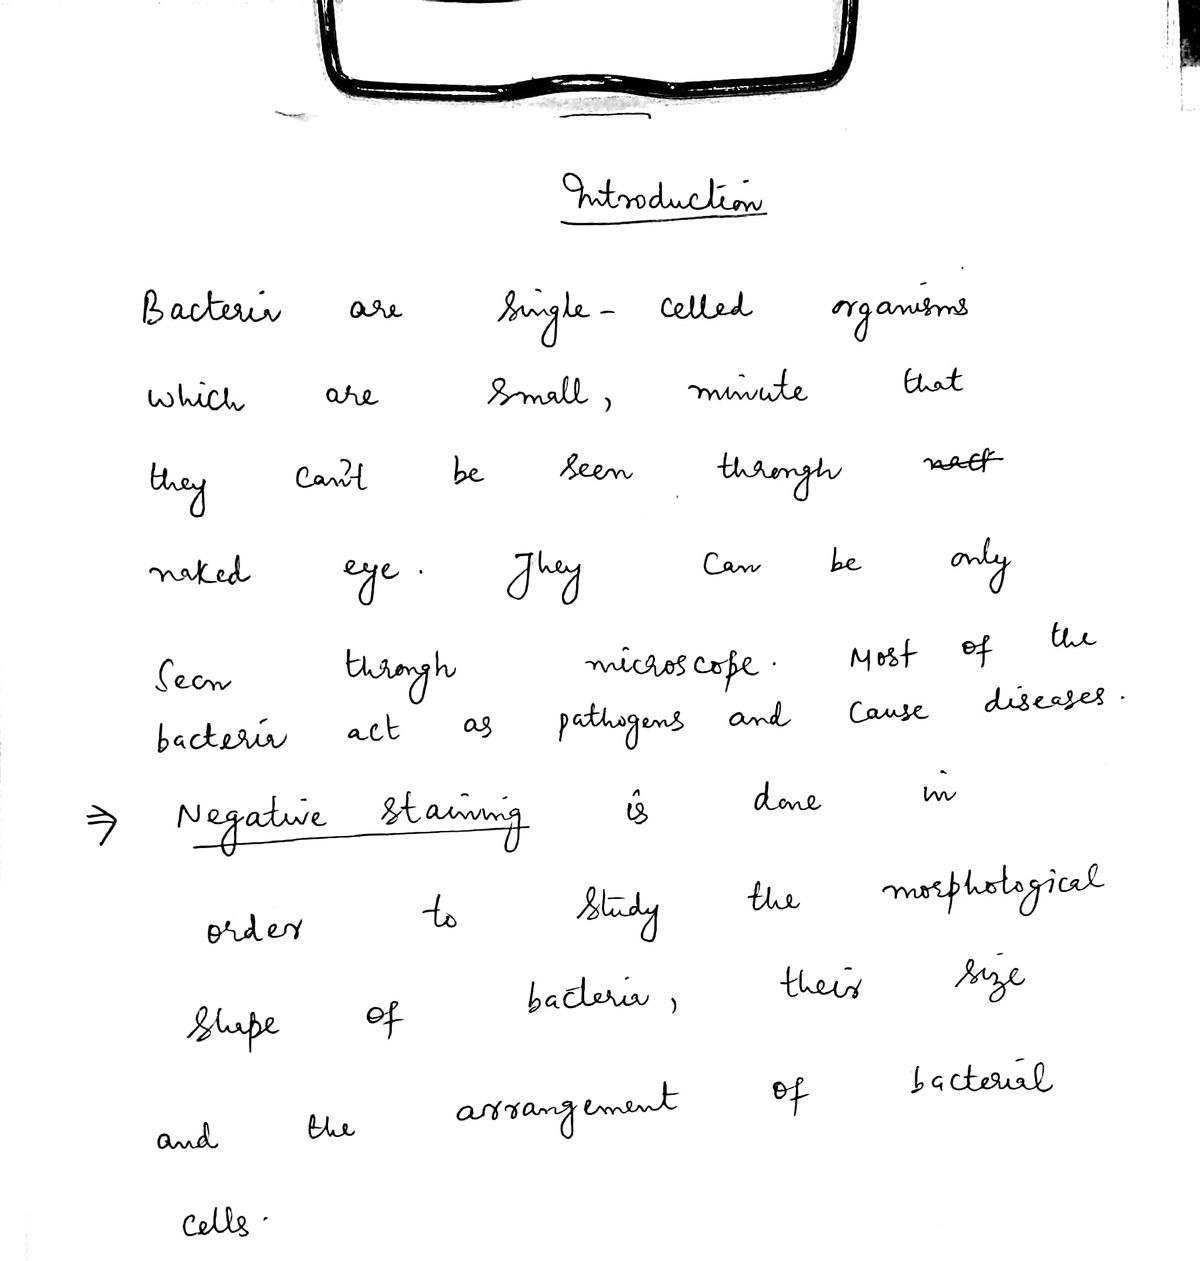 Introduction
Bacteria are single-celled organisms
which are small, minute that
they can't be seen through
naked eye. They can be only
seen through microscope. Most of the
bacteria act as pathogens and cause diseases.
⇒ Negative staining is done in
order to study the morphological
shape of bacteria, their size
and the arrangement of bacterial
cells.